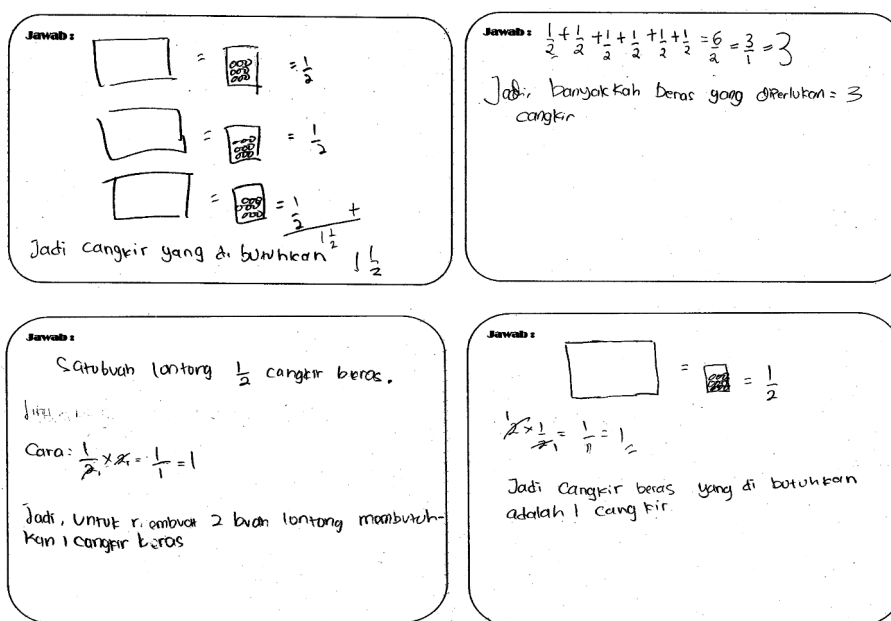 Jawab :
= = 1/2
= = 1/2
= = 1/2 +
1 1/2
Jadi cangkir yang di butuhkan 1 1/2
Jawab :
1/2 + 1/2 + 1/2 + 1/2 + 1/2 + 1/2 = 6/2 = 3/1 = 3
Jadi, banyakkah beras yang diperlukan = 3
cangkir
Jawab :
Satu buah lontong 1/2 cangkir beras.
Cara : 1/2 1 × 2 1 = 1/1 = 1
Jadi, untuk membuat 2 buah lontong membutuh-
kan 1 cangkir beras
Jawab :
= = 1/2
1 2 × 1/2 1 = 1/1 = 1
Jadi cangkir beras yang di butuhkan
adalah 1 cangkir